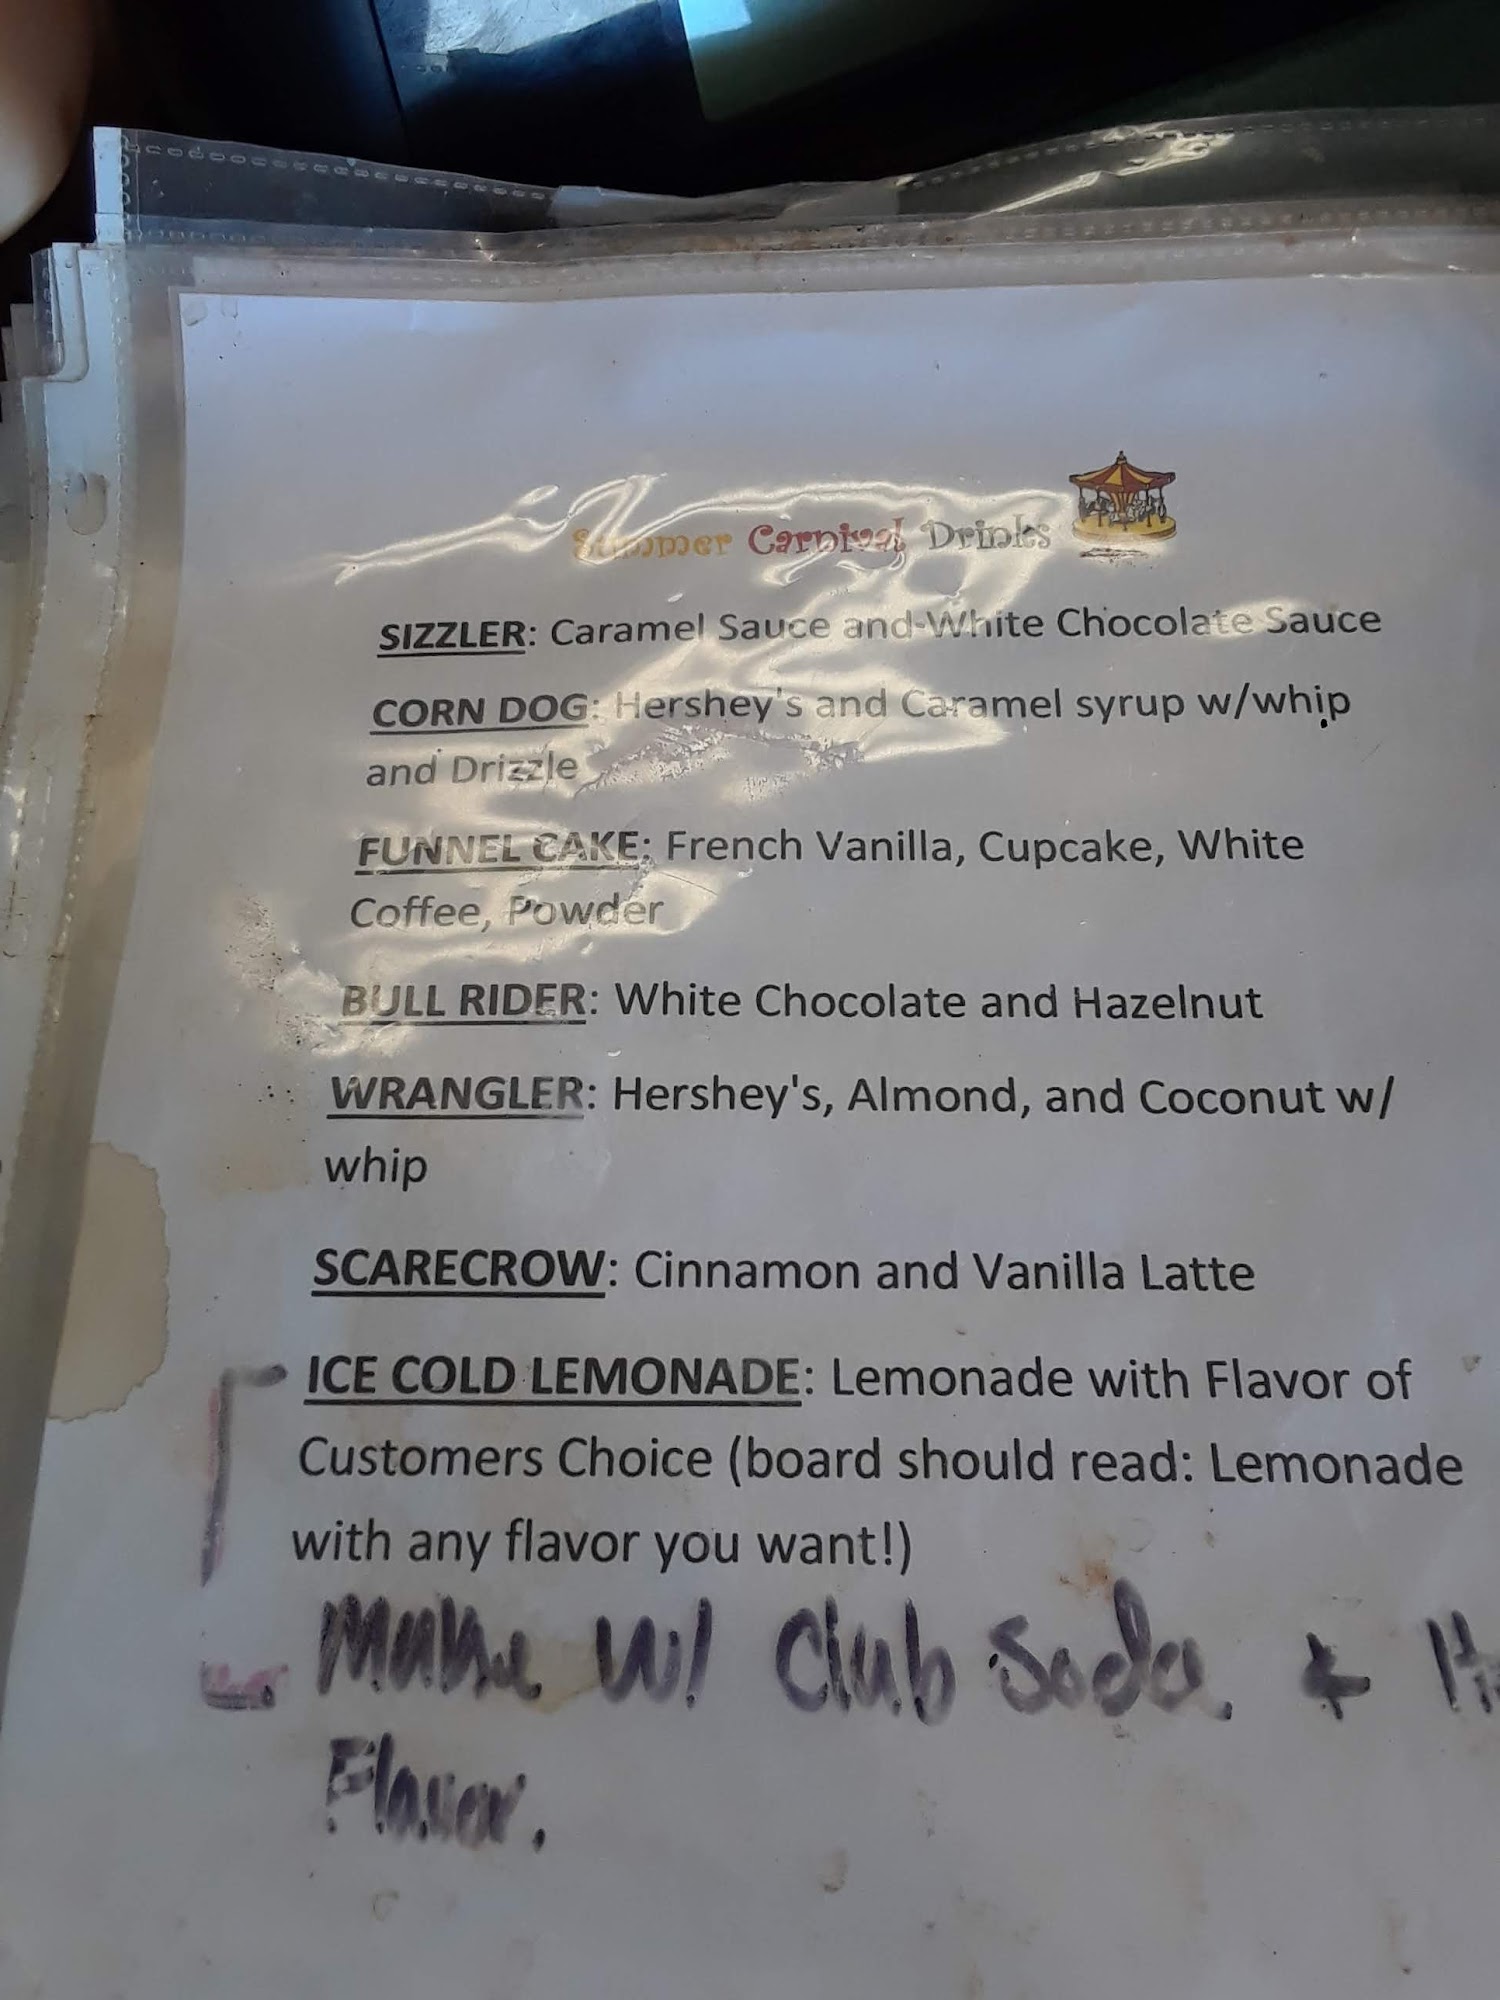 Summer Carnival Drinks
SIZZLER: Caramel Sauce and White Chocolate Sauce
CORN DOG: Hershey's and Caramel syrup w/whip
and Drizzle
FUNNEL CAKE: French Vanilla, Cupcake, White
Coffee, Powder
BULL RIDER: White Chocolate and Hazelnut
WRANGLER: Hershey's, Almond, and Coconut w/
whip
SCARECROW: Cinnamon and Vanilla Latte
ICE COLD LEMONADE: Lemonade with Flavor of
Customers Choice (board should read: Lemonade
with any flavor you want!)
Make w/ Club Soda &
Flavor.